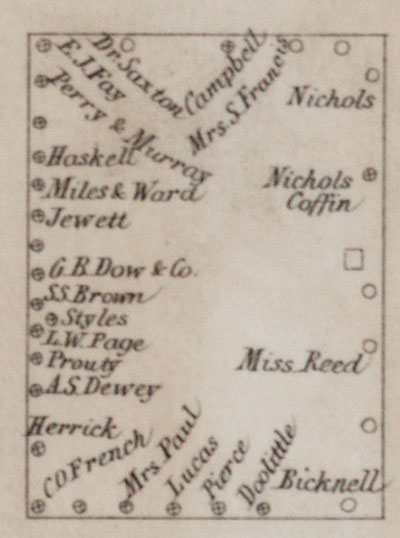 Dr. Saxton
E.J. Fay
Perry & Murray
Campbell
Mrs. S. Francis
Nichols
Haskell
Miles & Ward
Jewett
Nichols
Coffin
G.B. Dow & Co.
S.S. Brown
Styles
L.W. Page
Prouty
A.S. Dewey
Miss. Reed
Herrick
C.D. French
Mrs. Paul
Lucas
Pierce
Doolittle
Bicknell